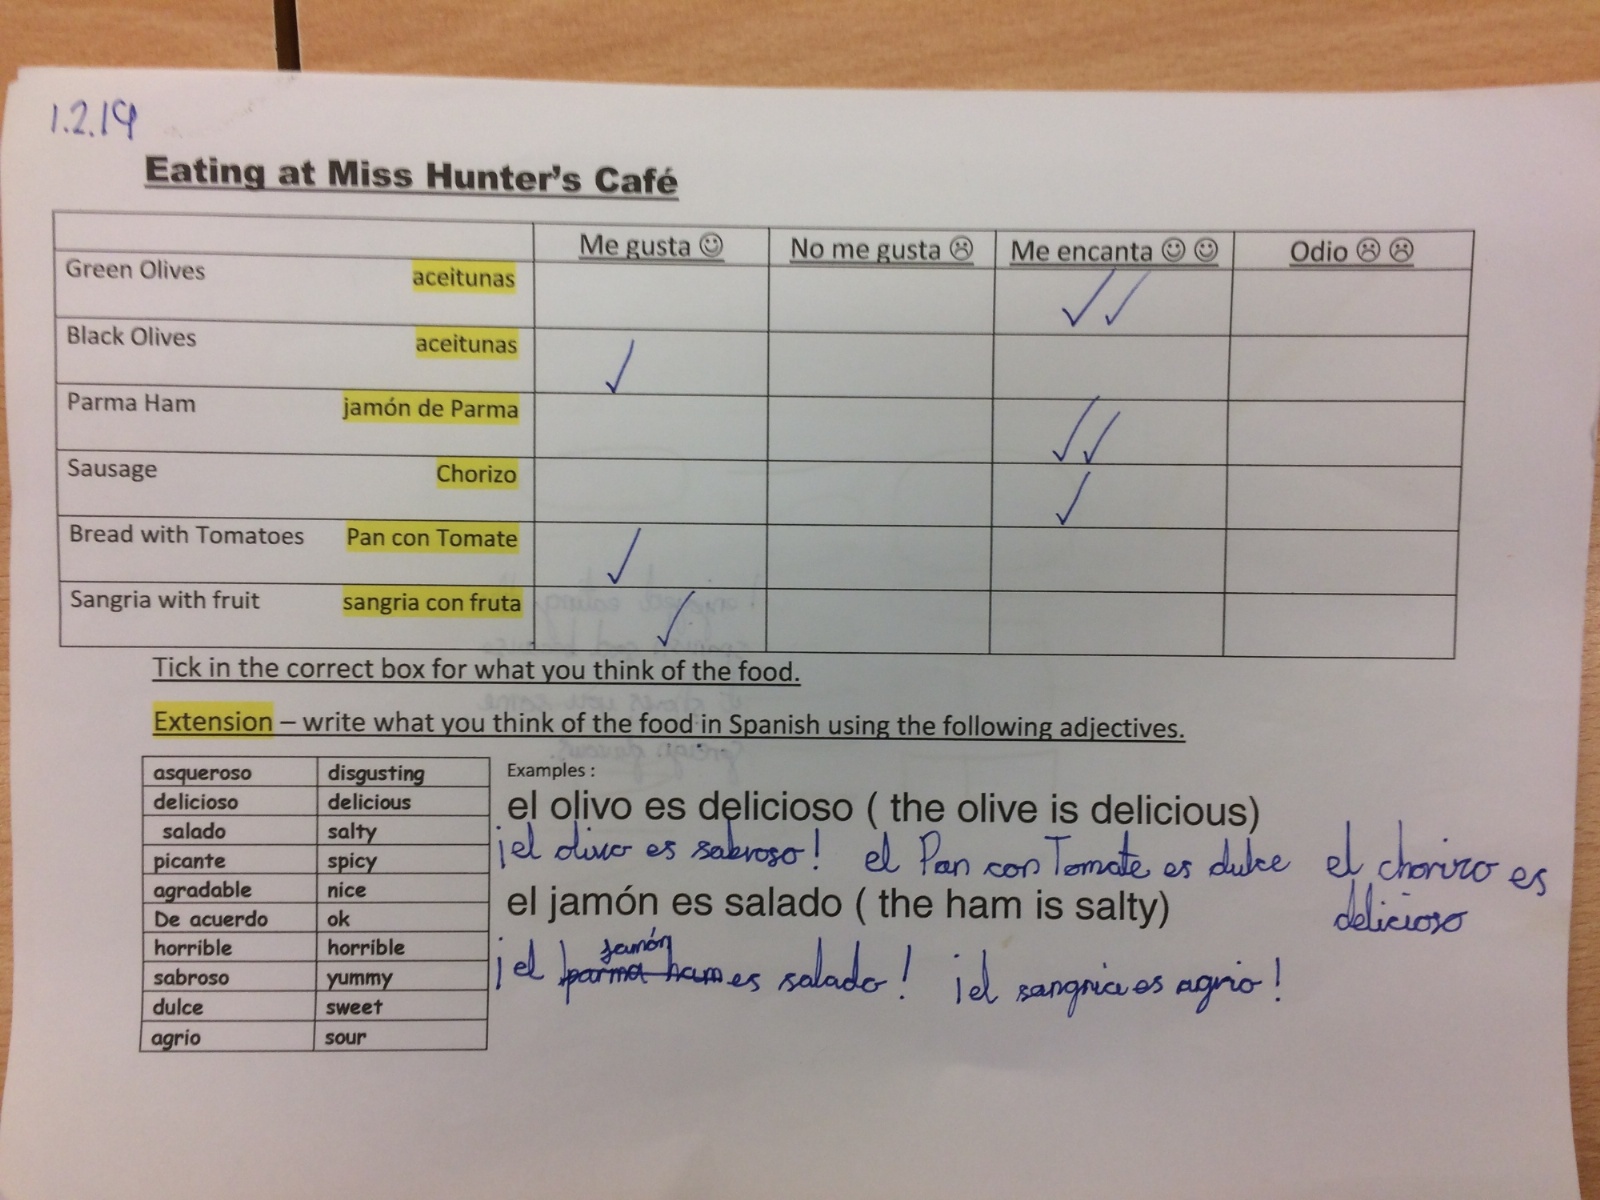 1.2.19
Eating at Miss Hunter's Café
Me gusta ☺ No me gusta ☹ Me encanta ☺ ☺ Odio ☹ ☹
Green Olives aceitunas ✓✓
Black Olives aceitunas ✓
Parma Ham jamón de Parma ✓✓
Sausage Chorizo ✓
Bread with Tomatoes Pan con Tomate ✓
Sangria with fruit sangria con fruta ✓
Tick in the correct box for what you think of the food.
Extension – write what you think of the food in Spanish using the following adjectives.
asqueroso disgusting
delicioso delicious
salado salty
picante spicy
agradable nice
De acuerdo ok
horrible horrible
sabroso yummy
dulce sweet
agrio sour
Examples :
el olivo es delicioso ( the olive is delicious)
¡el olivo es sabroso! el Pan con Tomate es dulce el chorizo es
delicioso
el jamón es salado ( the ham is salty)
jamón
¡el parma ham es salado! ¡el sangria es agrio!